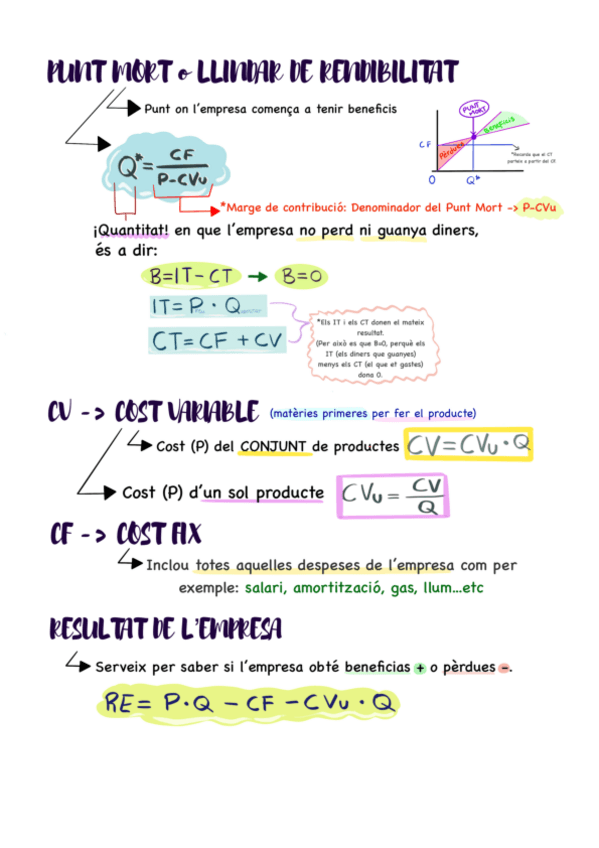 PUNT MORT o LLINDAR DE RENDIBILITAT
Punt on l'empresa comença a tenir beneficis
PUNT MORT
Beneficis
CF
Pèrdues
*Recorda que el CT
parteix a partir del CF
0 Q*
Q* = CF / P-CVu
*Marge de contribució: Denominador del Punt Mort -> P-CVu
¡Quantitat! en que l'empresa no perd ni guanya diners,
és a dir:
B=IT-CT → B=0
IT= P · Q
CT= CF + CV
*Els IT i els CT donen el mateix
resultat.
(Per això es que B=0, perquè els
IT (els diners que guanyes)
menys els CT (el que et gastes)
dona 0.
CV -> COST VARIABLE (matèries primeres per fer el producte)
Cost (P) del CONJUNT de productes CV=CVu·Q
Cost (P) d'un sol producte CVu = CV / Q
CF -> COST FIX
Inclou totes aquelles despeses de l'empresa com per
exemple: salari, amortització, gas, llum...etc
RESULTAT DE L'EMPRESA
Serveix per saber si l'empresa obté beneficias + o pèrdues -.
RE= P·Q - CF - CVu · Q